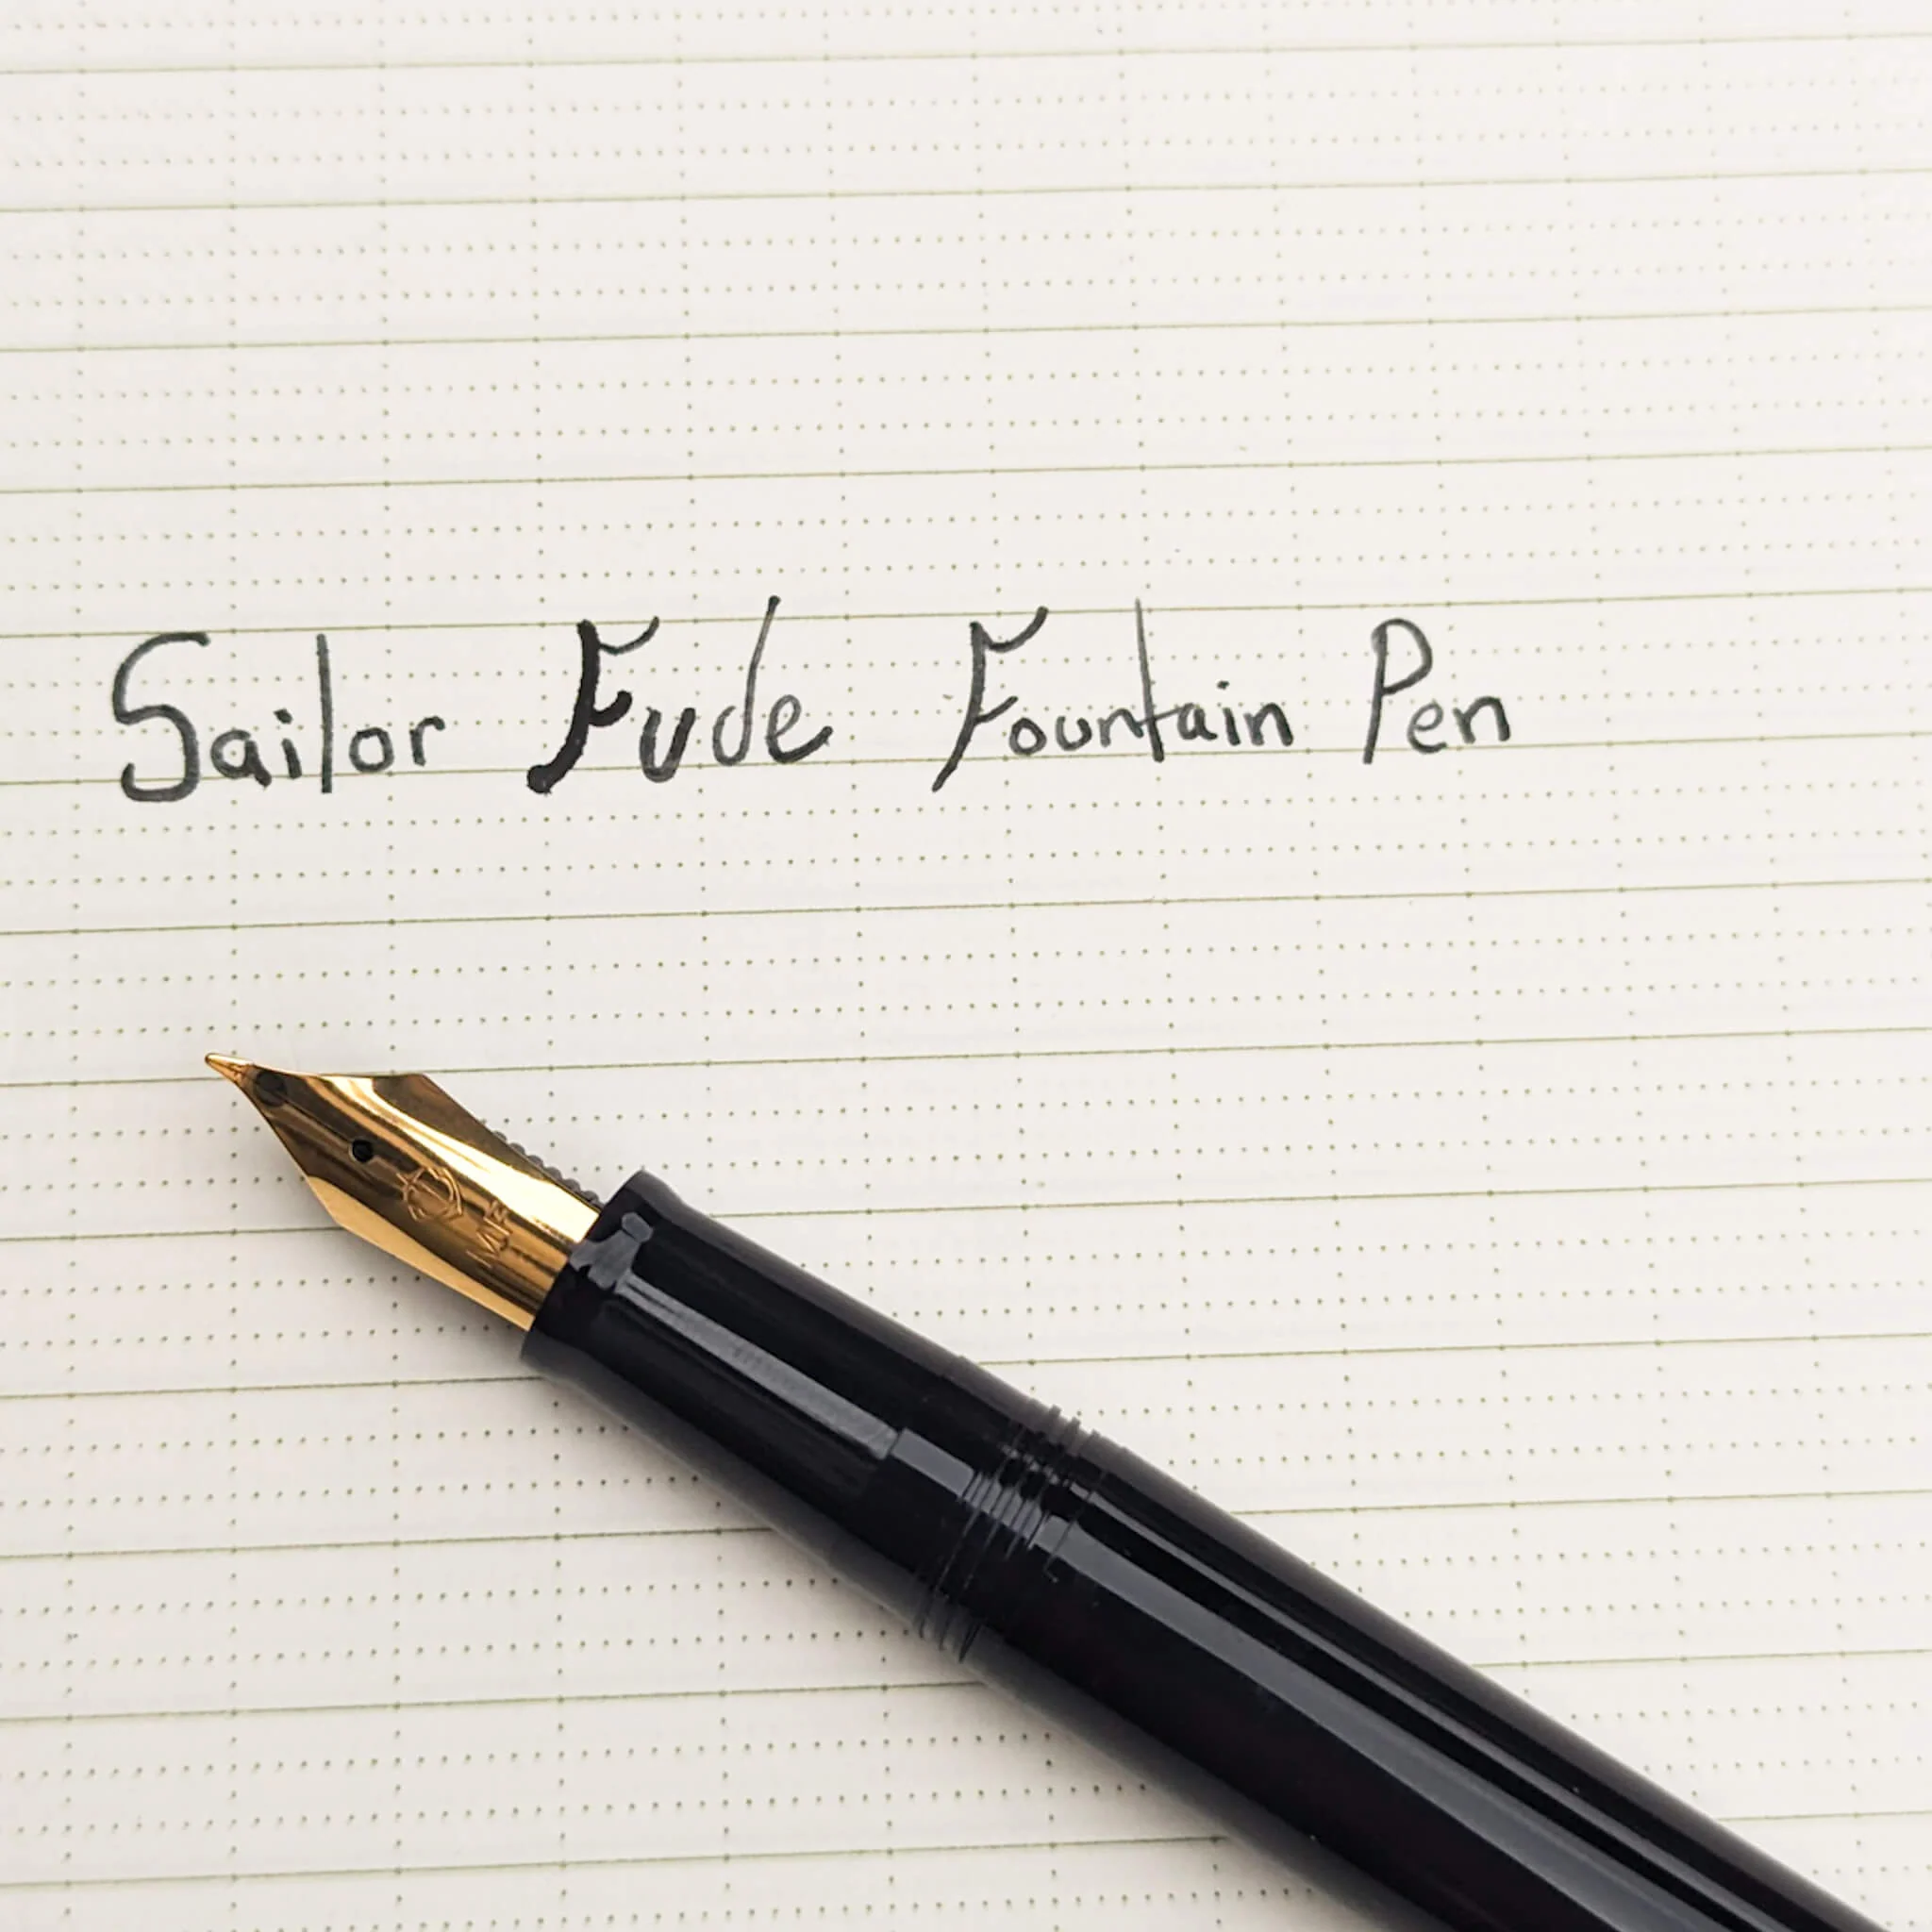 Sailor Fude Fountain Pen
MF